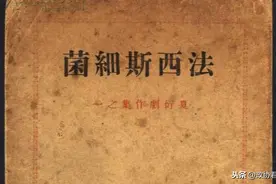 法西斯細菌
夏衍劇作集之一
头条